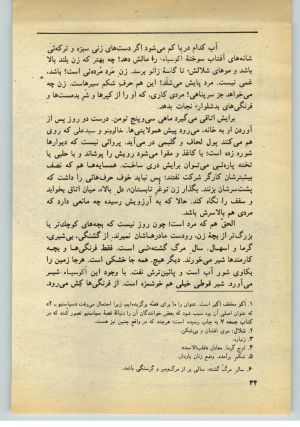 آب کدام دریا کم می‌شود اگر دست‌های زنی سبزه و ترکه‌ئی
شانه‌های آفتاب سوختهٔ اکوسیاه۱ را مالش دهد؟ چه بهتر که زن بلند بالا
باشد و موهای شلالش۲ تا کاسهٔ زانو برسد. زن مرد مُرده‌ئی است؟ باشد.
غمی نیست. مرد پاپتی می‌شلد؟ این هم حرف شکم سیرهاست. زن چه
می‌خواهد جز سرپناهی؟ مردی کاری، که او را از کپرها و شر بدمست‌ها و
فرنگی‌های بدشلوار۳ نجات بدهد.
برایش اتاقی می‌گیرد ماهی سی‌وپنج تومن. درست دو روز پس از
آوردن او به خانه، می‌رود پیش همولایتی‌ها. خالوینو و سیدعلی که روی
هم می‌کنند پول لحاف و گلیمی در می‌آید. پروانی نیست که دیوارها
شوره زده است؛ با کاغذ و مقوا می‌شود رویش را پوشاند و با حلبی یا
تخته پاره‌ئی می‌توان برایش دری ساخت. همسایه‌ها هم که نصف
بیشترشان کارگر شرکت نفتند؛ پس نباید خوف حرف‌هائی را داشت که
پشت‌سرشان بزنند. بگذار زن توغر تابستان۴، دل بالا۵، میان اتاق بخوابد
و سقف را نگاه کند. حالا که به آرزویش رسیده چه مانعی دارد که
مردی هم بالاسرش باشد.
الحق هم که مرد است! چون روز نیست که بچه‌های کوچک‌تر یا
بزرگ‌تر از بچهٔ زن، رودست مادرهاشان نمیرند. از گشنگی، بی‌شیری،
گرما و اسهال. سال مرگ گشنه‌شی۶ است. فقط فرنگی‌ها و بچه
کارمندها شیر می‌خورند. دیگر هیچ. همه جا خشکی است. هرجا زمین را
بکاوی شور آب است و پائین‌ترش نفت. با وجود این اکوسیاه، شیر
می‌آورد. شیر قوطی خیلی هم خوشمزه است. از فرنگی‌ها کش می‌رود.
۱. اکو مخفف اکبر است. عنوان را ما برای قصهٔ برگزیده‌ایم زیرا احتمال می‌رفت «سیاسنبو-۲»
که عنوان اصلی آن بود سبب شود که بعض خوانندگان آن را دنبالهٔ قصهٔ سیاسنبو تصور کنند که در
کتاب جمعه ۷ به چاپ رسیده است؛ هرچند که در واقع چنین نیز هست.
۲. شلال، موی افشان و بی‌شکن.
۳. زنباره.
۴. اوج گرما. معادل «قلب‌الاسد».
۵. شکم برآمده. وضع زنان باردار.
۶. سال مرگ گشنه: سالی پر از مرگ‌ومیر و گرسنگی باشد.
۳۴